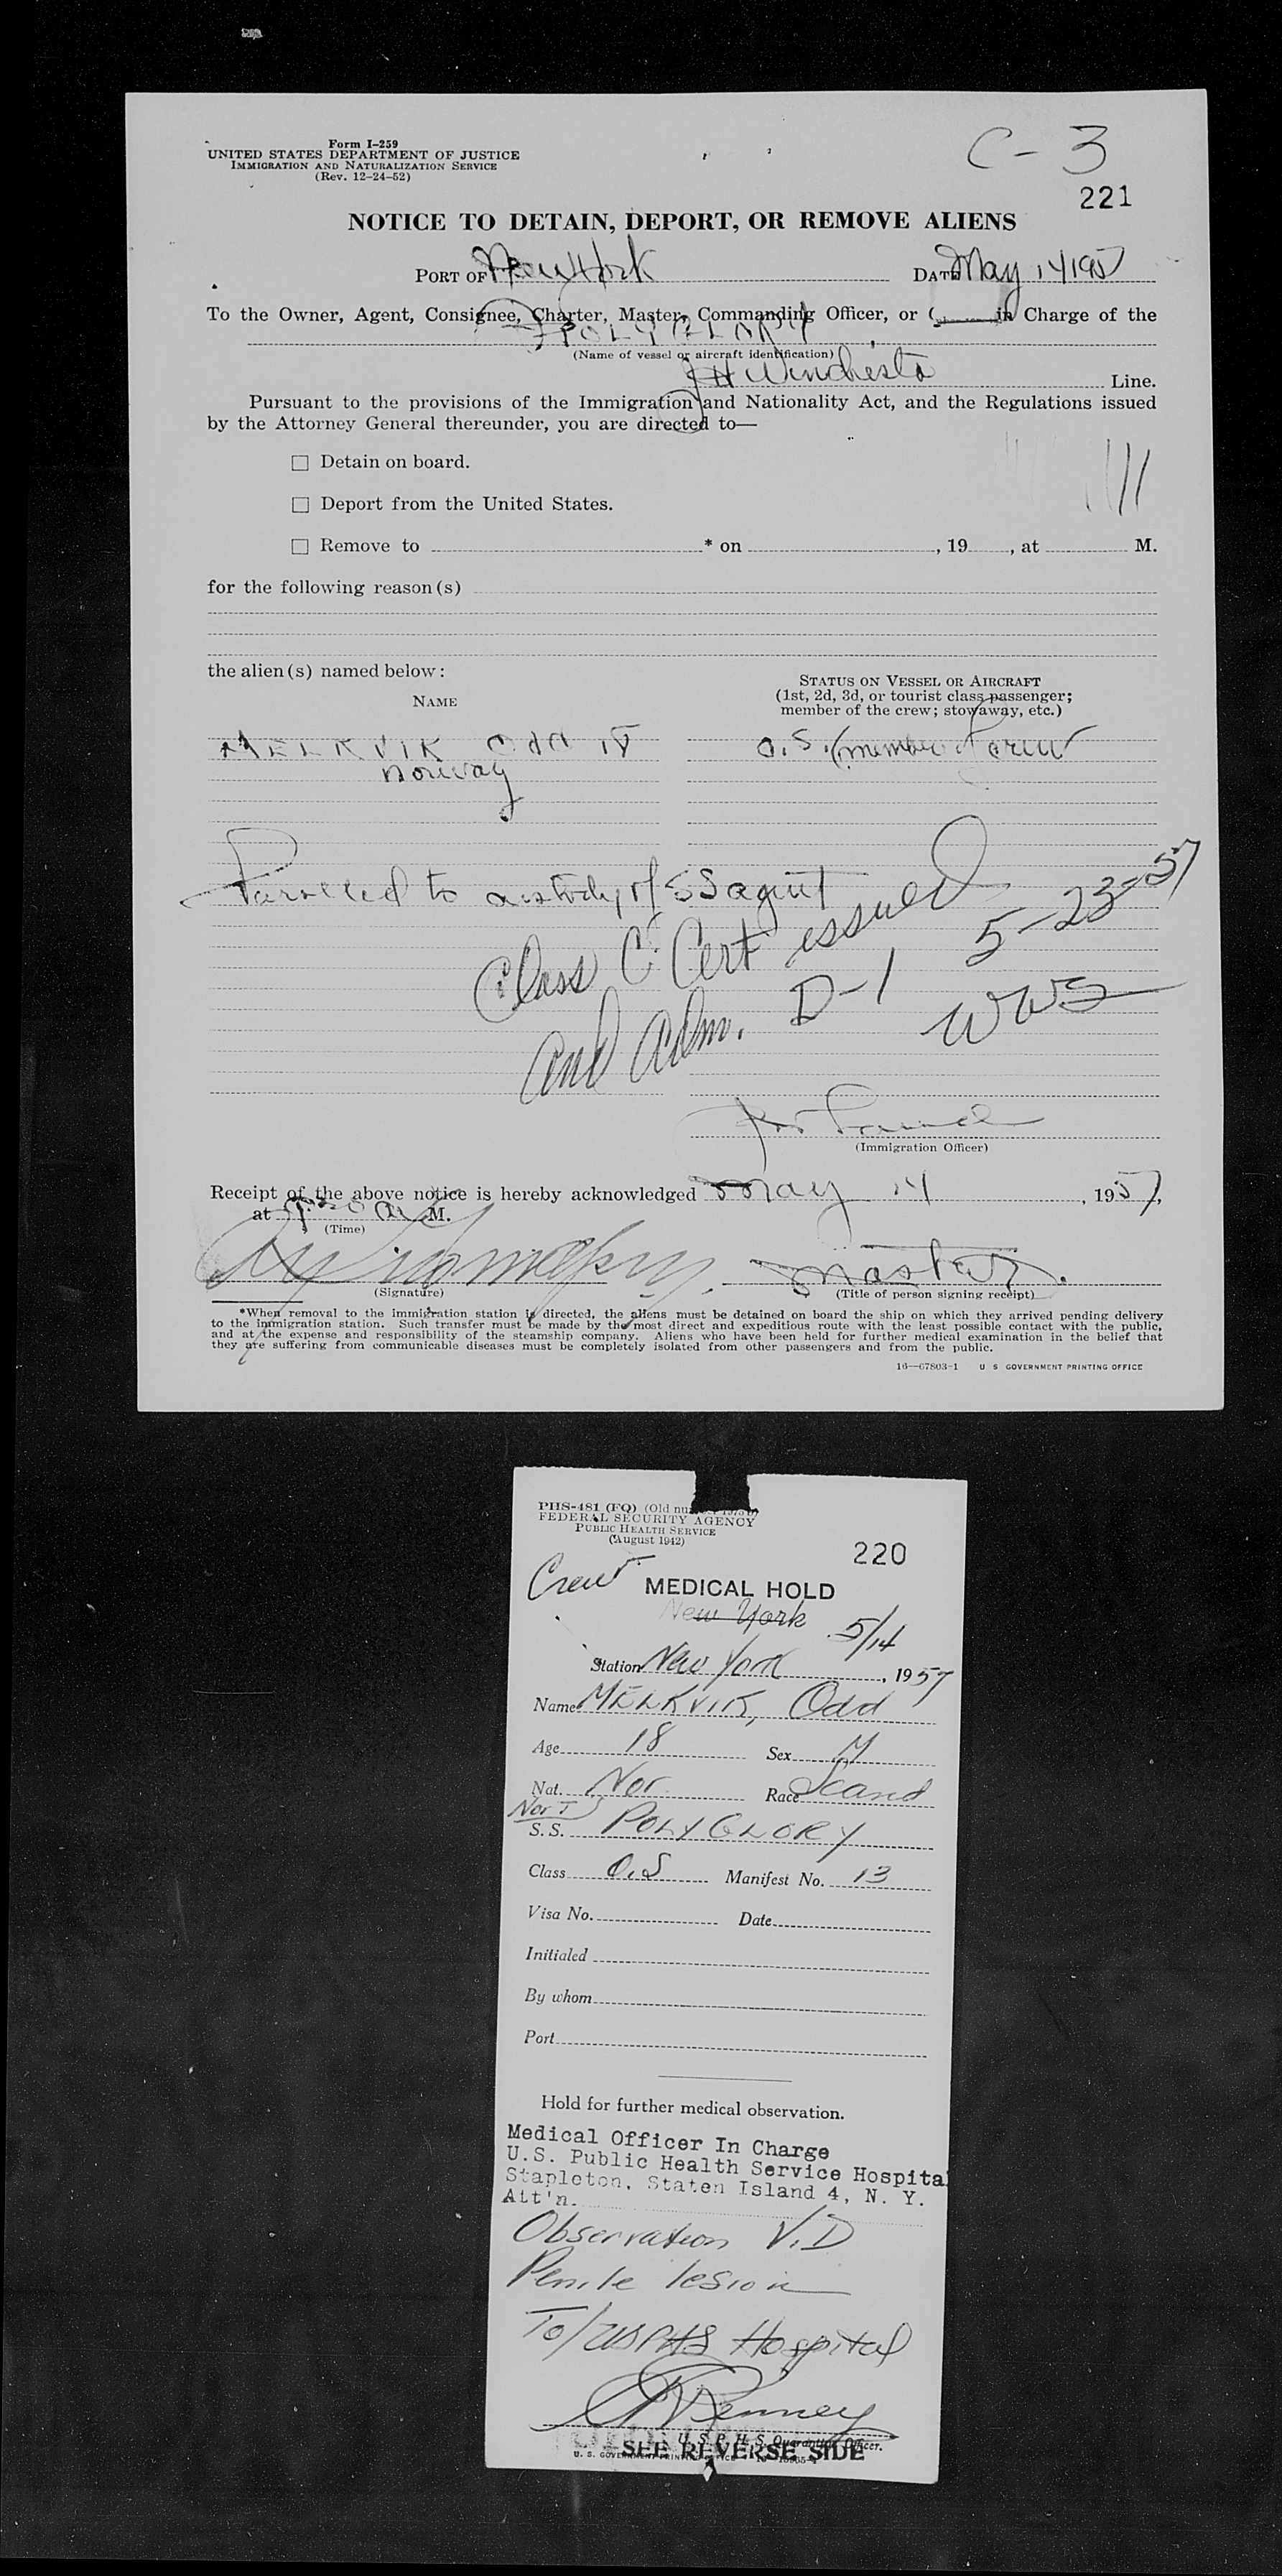 Form I-259
UNITED STATES DEPARTMENT OF JUSTICE
IMMIGRATION AND NATURALIZATION SERVICE
(Rev. 12-24-52)
C-3
221
NOTICE TO DETAIN, DEPORT, OR REMOVE ALIENS
PORT OF New York DATE May 14 1957
To the Owner, Agent, Consignee, Charter, Master, Commanding Officer, or in Charge of the
POLYGLORY
(Name of vessel or aircraft identification)
JH Winchester Line.
Pursuant to the provisions of the Immigration and Nationality Act, and the Regulations issued
by the Attorney General thereunder, you are directed to—
☐ Detain on board.
☐ Deport from the United States.
☐ Remove to * on , 19 , at M.
for the following reason(s)
the alien(s) named below:
NAME
STATUS ON VESSEL OR AIRCRAFT
(1st, 2d, 3d, or tourist class passenger;
member of the crew; stowaway, etc.)
MELKVIK Odd 18 O.S. (member of crew
Norway
Parolled to custody of SS agent
Class C Cert issued
and adm. D-1 5-23-57
WWS
(Immigration Officer)
Receipt of the above notice is hereby acknowledged May 14, 1957,
at M.
(Time)
Master.
(Signature) (Title of person signing receipt)
*When removal to the immigration station is directed, the aliens must be detained on board the ship on which they arrived pending delivery
to the immigration station. Such transfer must be made by the most direct and expeditious route with the least possible contact with the public,
and at the expense and responsibility of the steamship company. Aliens who have been held for further medical examination in the belief that
they are suffering from communicable diseases must be completely isolated from other passengers and from the public.
16—67803-1 U S GOVERNMENT PRINTING OFFICE
PHS-481 (FQ) (Old
FEDERAL SECURITY AGENCY
PUBLIC HEALTH SERVICE
(August 1942)
220
Crew MEDICAL HOLD
New York 5/14
Station New York, 1957
Name MELKVIK, Odd
Age 18 Sex M
Nat. Nor Race Scand
Nor T
S.S. POLYGLORY
Class O.S Manifest No. 13
Visa No. Date
Initialed
By whom
Port
Hold for further medical observation.
Medical Officer In Charge
U.S. Public Health Service Hospital
Stapleton, Staten Island 4, N. Y.
Att'n.
Observation V.D
Penile lesion
To/USPHS Hospital
Penney
U.S.P.H.S. Quarantine Officer.
SEE REVERSE SIDE